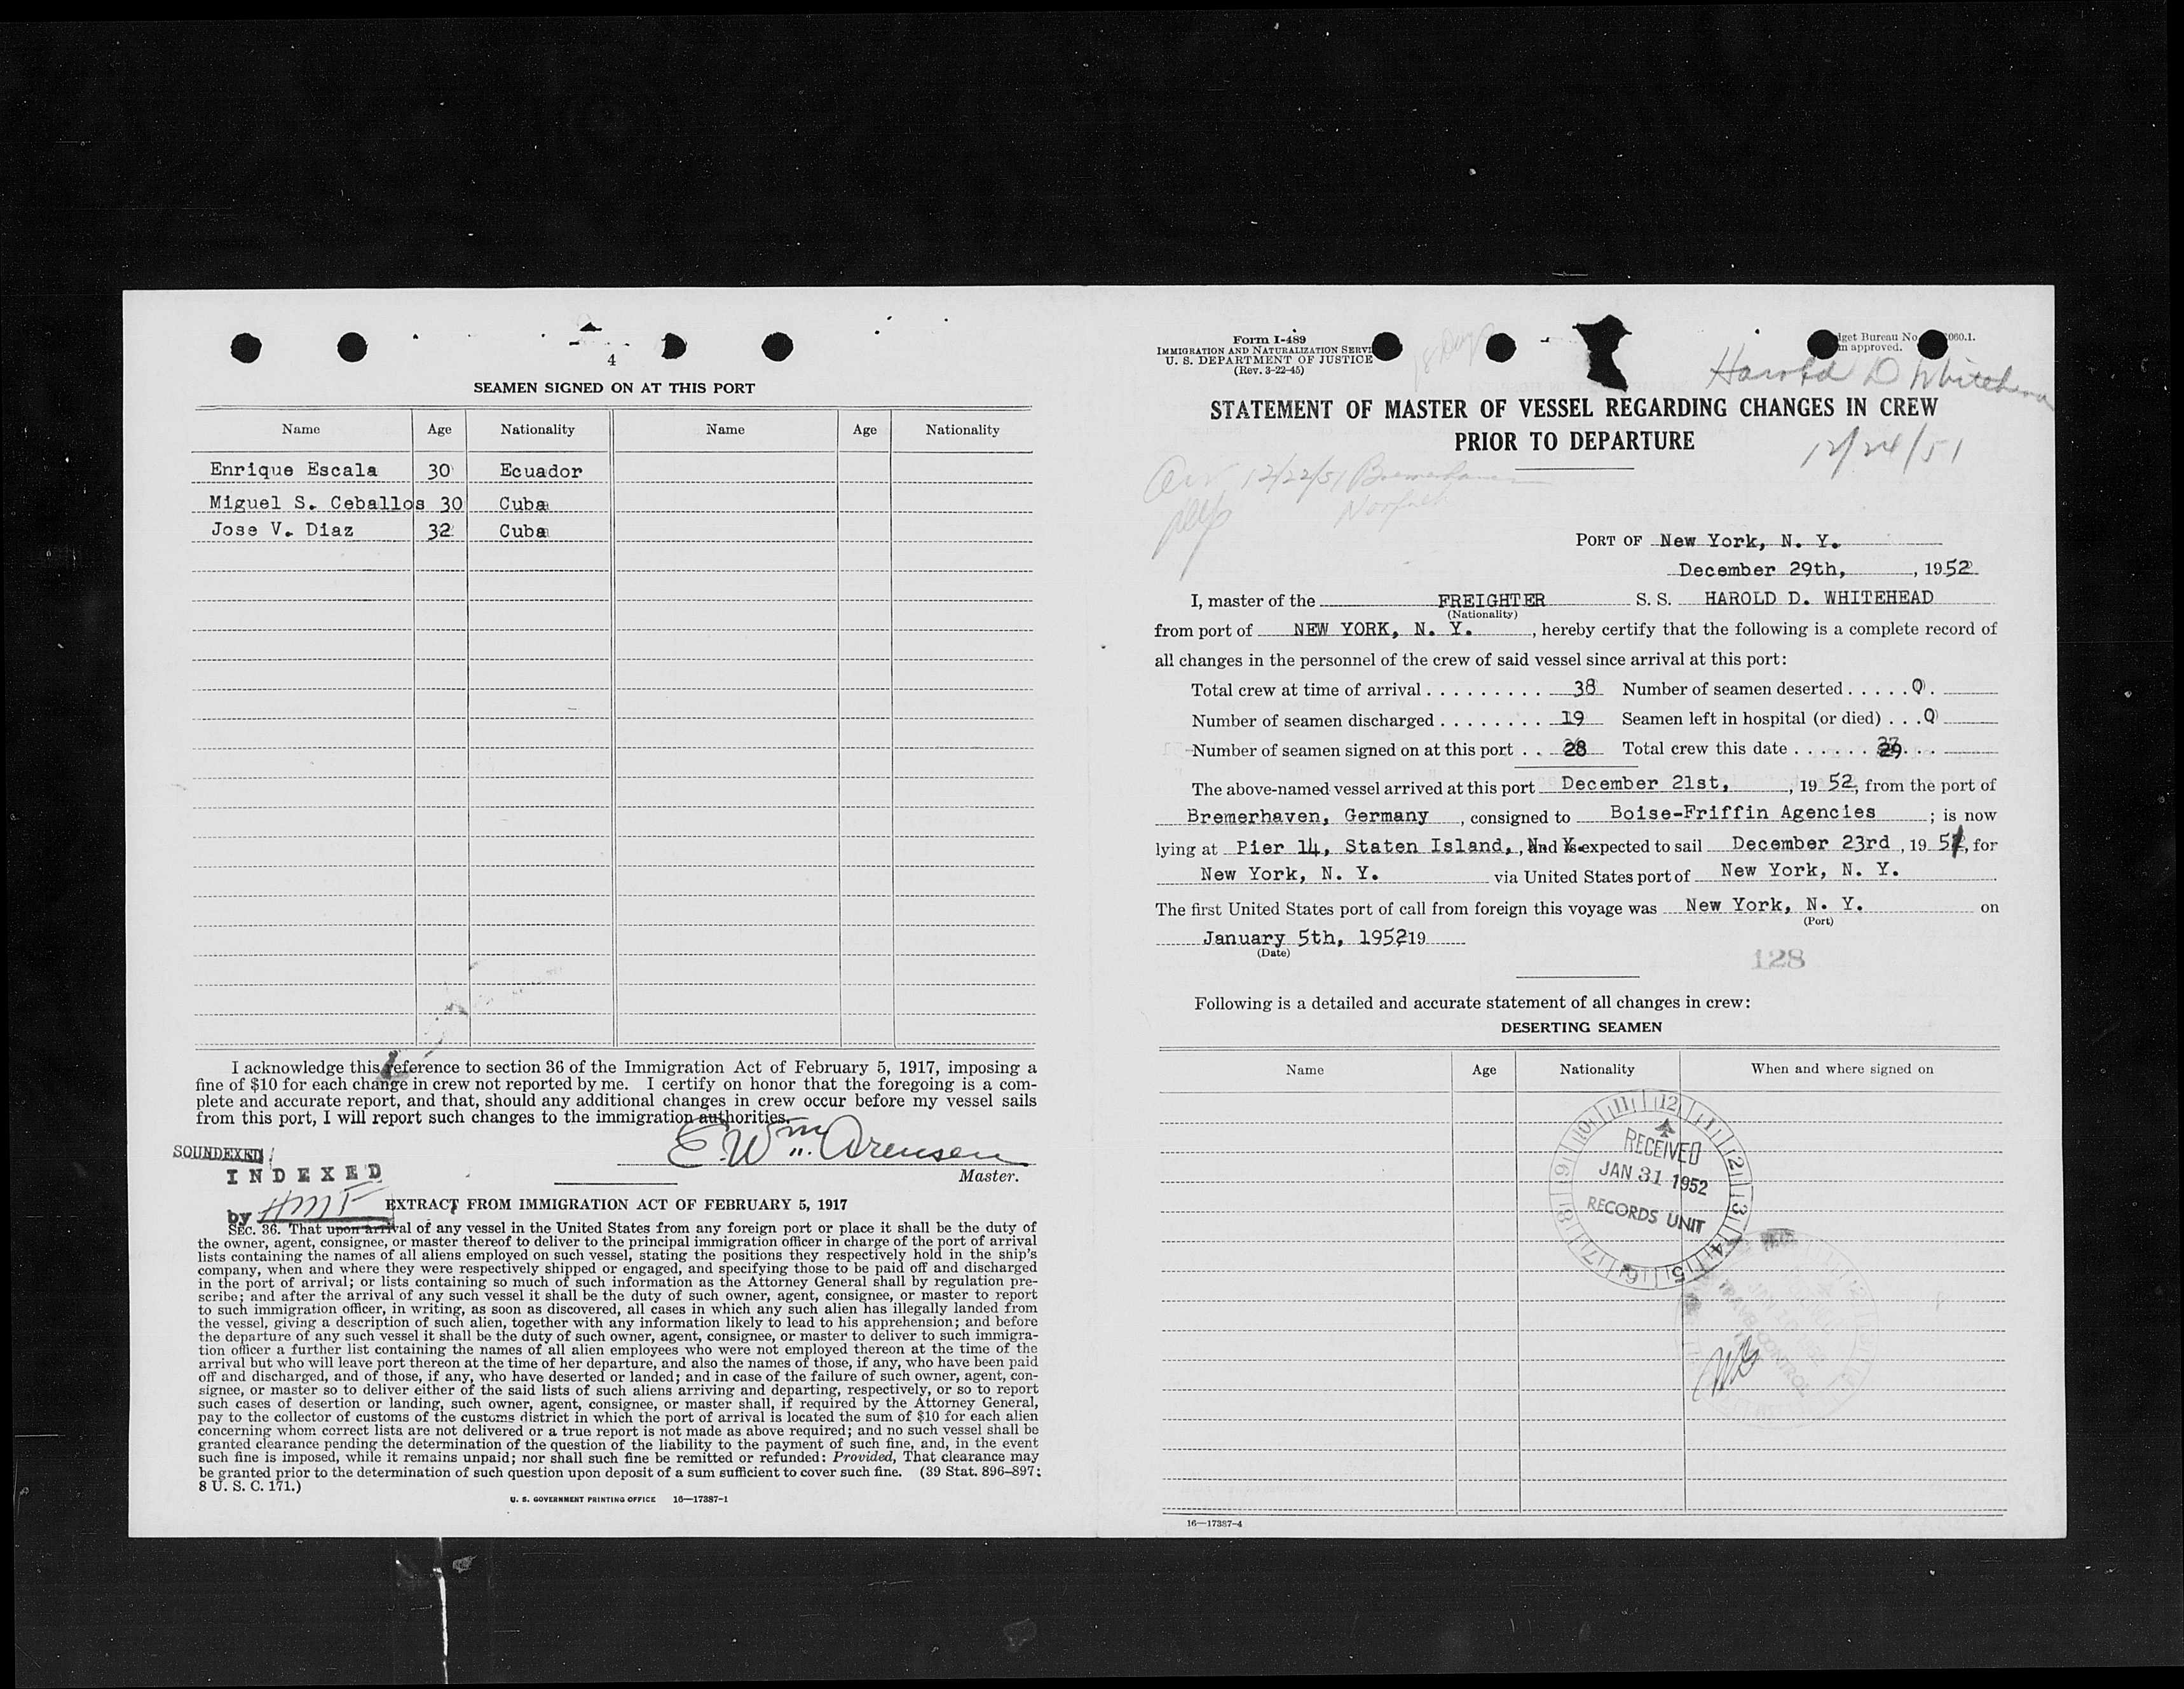 4
SEAMEN SIGNED ON AT THIS PORT
Name Age Nationality Name Age Nationality
Enrique Escala 30 Ecuador
Miguel S. Ceballos 30 Cuba
Jose V. Diaz 32 Cuba
I acknowledge this reference to section 36 of the Immigration Act of February 5, 1917, imposing a
fine of $10 for each change in crew not reported by me. I certify on honor that the foregoing is a com-
plete and accurate report, and that, should any additional changes in crew occur before my vessel sails
from this port, I will report such changes to the immigration authorities.
E. Wm. Arensen
Master.
SOUNDEXED
INDEXED
by HMF
EXTRACT FROM IMMIGRATION ACT OF FEBRUARY 5, 1917
SEC. 36. That upon arrival of any vessel in the United States from any foreign port or place it shall be the duty of
the owner, agent, consignee, or master thereof to deliver to the principal immigration officer in charge of the port of arrival
lists containing the names of all aliens employed on such vessel, stating the positions they respectively hold in the ship's
company, when and where they were respectively shipped or engaged, and specifying those to be paid off and discharged
in the port of arrival; or lists containing so much of such information as the Attorney General shall by regulation pre-
scribe; and after the arrival of any such vessel it shall be the duty of such owner, agent, consignee, or master to report
to such immigration officer, in writing, as soon as discovered, all cases in which any such alien has illegally landed from
the vessel, giving a description of such alien, together with any information likely to lead to his apprehension; and before
the departure of any such vessel it shall be the duty of such owner, agent, consignee, or master to deliver to such immigra-
tion officer a further list containing the names of all alien employees who were not employed thereon at the time of the
arrival but who will leave port thereon at the time of her departure, and also the names of those, if any, who have been paid
off and discharged, and of those, if any, who have deserted or landed; and in case of the failure of such owner, agent, con-
signee, or master so to deliver either of the said lists of such aliens arriving and departing, respectively, or so to report
such cases of desertion or landing, such owner, agent, consignee, or master shall, if required by the Attorney General,
pay to the collector of customs of the customs district in which the port of arrival is located the sum of $10 for each alien
concerning whom correct lists are not delivered or a true report is not made as above required; and no such vessel shall be
granted clearance pending the determination of the question of the liability to the payment of such fine, and, in the event
such fine is imposed, while it remains unpaid; nor shall such fine be remitted or refunded: Provided, That clearance may
be granted prior to the determination of such question upon deposit of a sum sufficient to cover such fine. (39 Stat. 896-897;
8 U. S. C. 171.)
U. S. GOVERNMENT PRINTING OFFICE 16—17387-1
Form I-489
IMMIGRATION AND NATURALIZATION SERVI
U. S. DEPARTMENT OF JUSTICE
(Rev. 3-22-45)
get Bureau No 060.1.
approved.
Harold D Whitehead
STATEMENT OF MASTER OF VESSEL REGARDING CHANGES IN CREW
PRIOR TO DEPARTURE
12/24/51
Arr 12/22/51 Bremerhaven
Norfolk
PORT OF New York, N. Y.
December 29th, , 1952
I, master of the FREIGHTER S. S. HAROLD D. WHITEHEAD
(Nationality)
from port of NEW YORK, N. Y. , hereby certify that the following is a complete record of
all changes in the personnel of the crew of said vessel since arrival at this port:
Total crew at time of arrival . . . . . . . . . 38 Number of seamen deserted . . . . . 0 .
Number of seamen discharged . . . . . . . . 19 Seamen left in hospital (or died) . . . 0
Number of seamen signed on at this port . . 28 Total crew this date . . . . . . 29 . .
The above-named vessel arrived at this port December 21st, , 19 52, from the port of
Bremerhaven, Germany , consigned to Boise-Friffin Agencies ; is now
lying at Pier 14, Staten Island, N. Y. , and is expected to sail December 23rd , 19 51, for
New York, N. Y. via United States port of New York, N. Y.
The first United States port of call from foreign this voyage was New York, N. Y. on
(Port)
January 5th, 1952 19
(Date)
128
Following is a detailed and accurate statement of all changes in crew:
DESERTING SEAMEN
Name Age Nationality When and where signed on
12 1 2 3 4 5 6 7 8 9 10 11
RECEIVED
JAN 31 1952
RECORDS UNIT
TRAVEL CONTROL
16—17387-4